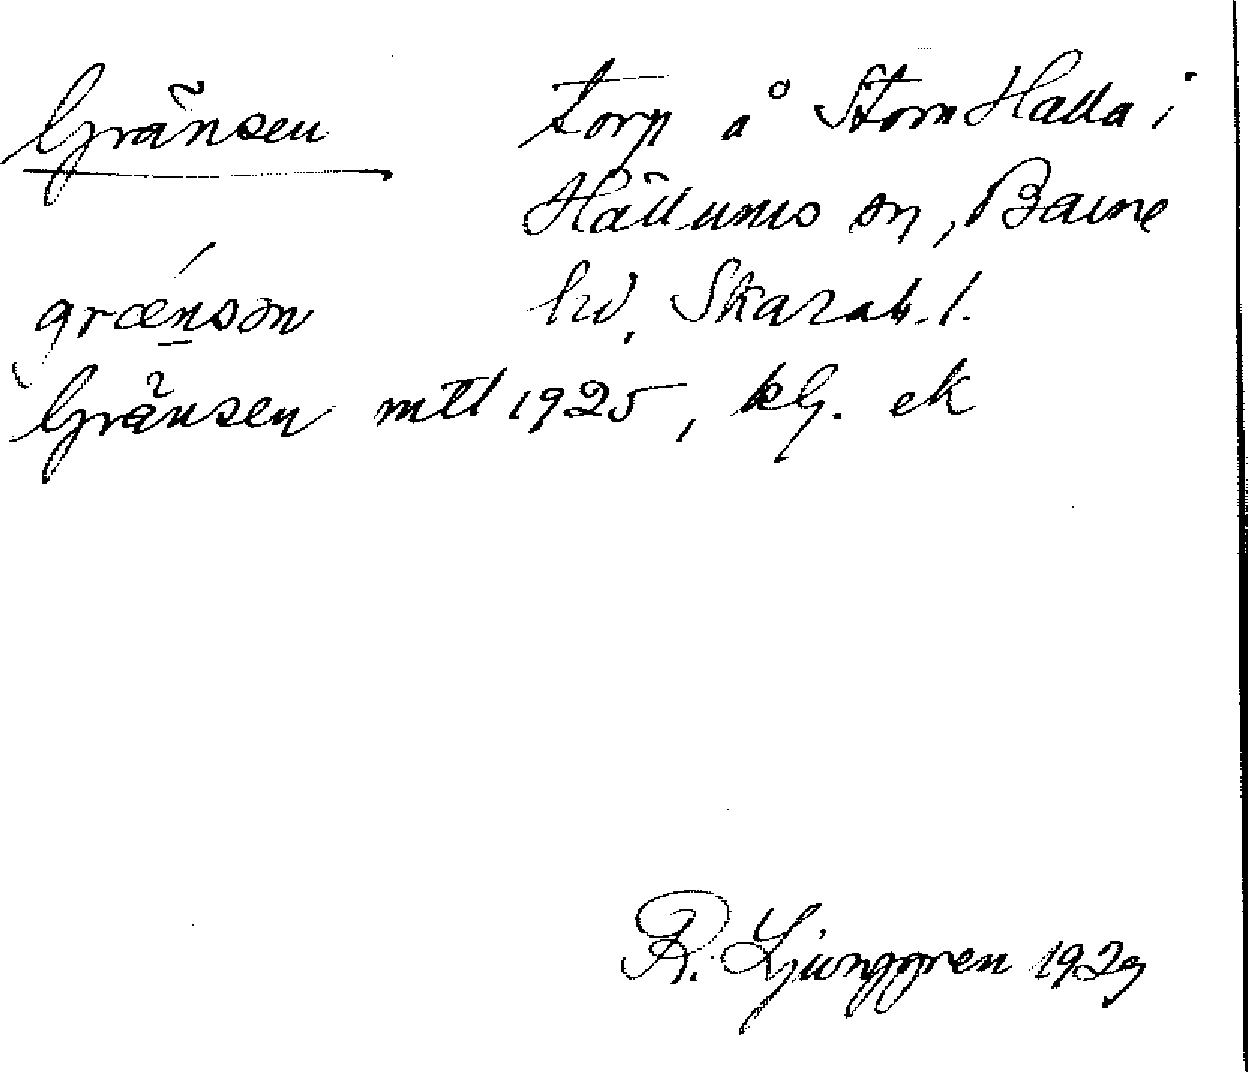 Gränsen torp å Stora Halla i
Hällums sn, Barne
græ´nsən hd. Skarab. l.
Gränsen mtl 1925, kG. ek
R. Ljunggren 1929